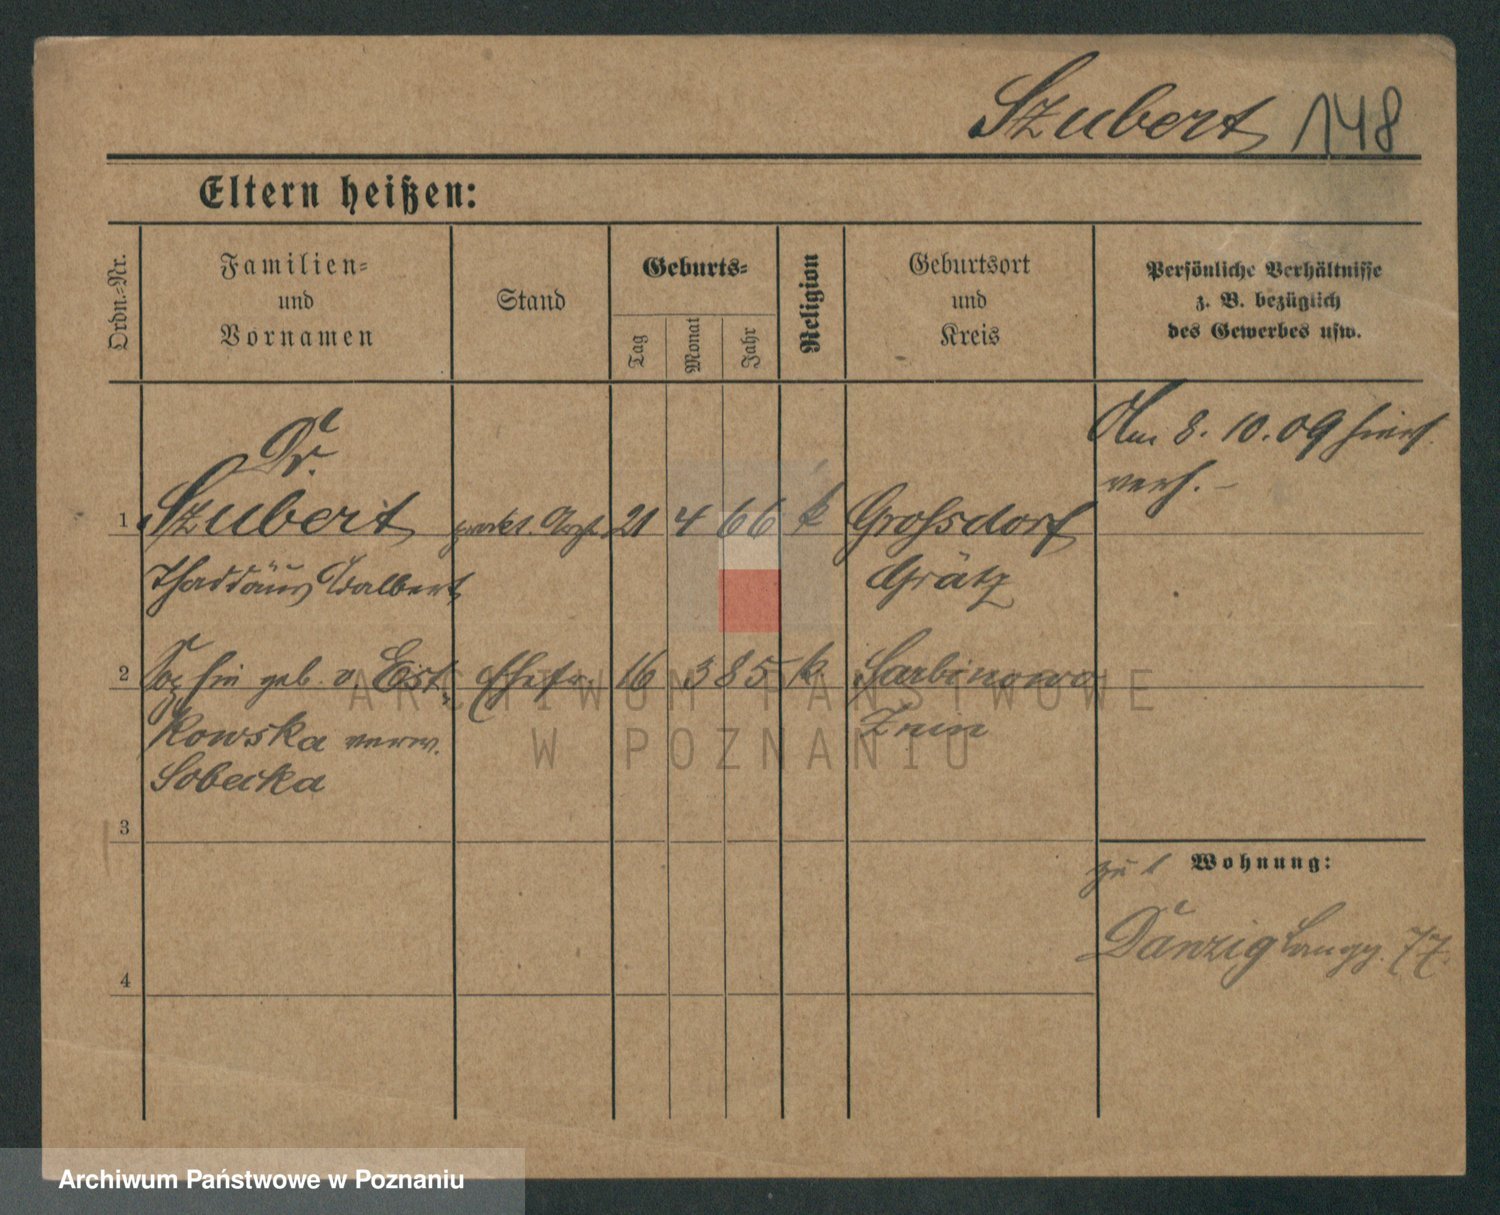 Szubert 148
Eltern heißen:
Ordn.-Nr.
Familien-
und
Vornamen
Stand
Geburts-
Tag
Monat
Jahr
Religion
Geburtsort
und
Kreis
Persönliche Verhältnisse
z. B. bezüglich
des Gewerbes usw.
Am 8. 10. 09 hier
verh. –
Dr.
1 Szubert prakt. Arzt 21 4 66 k Grossdorf
Thaddäus Adalbert Grätz
2 Sophie geb. v. Eist- Ehefr. 16 3 85 k Sarbinowo
kowska verw. Znin
Sobecka
3
zu 1 Wohnung:
Danzig Langg. 77.
4
ARCHIWUM PAŃSTWOWE
W POZNANIU
Archiwum Państwowe w Poznaniu